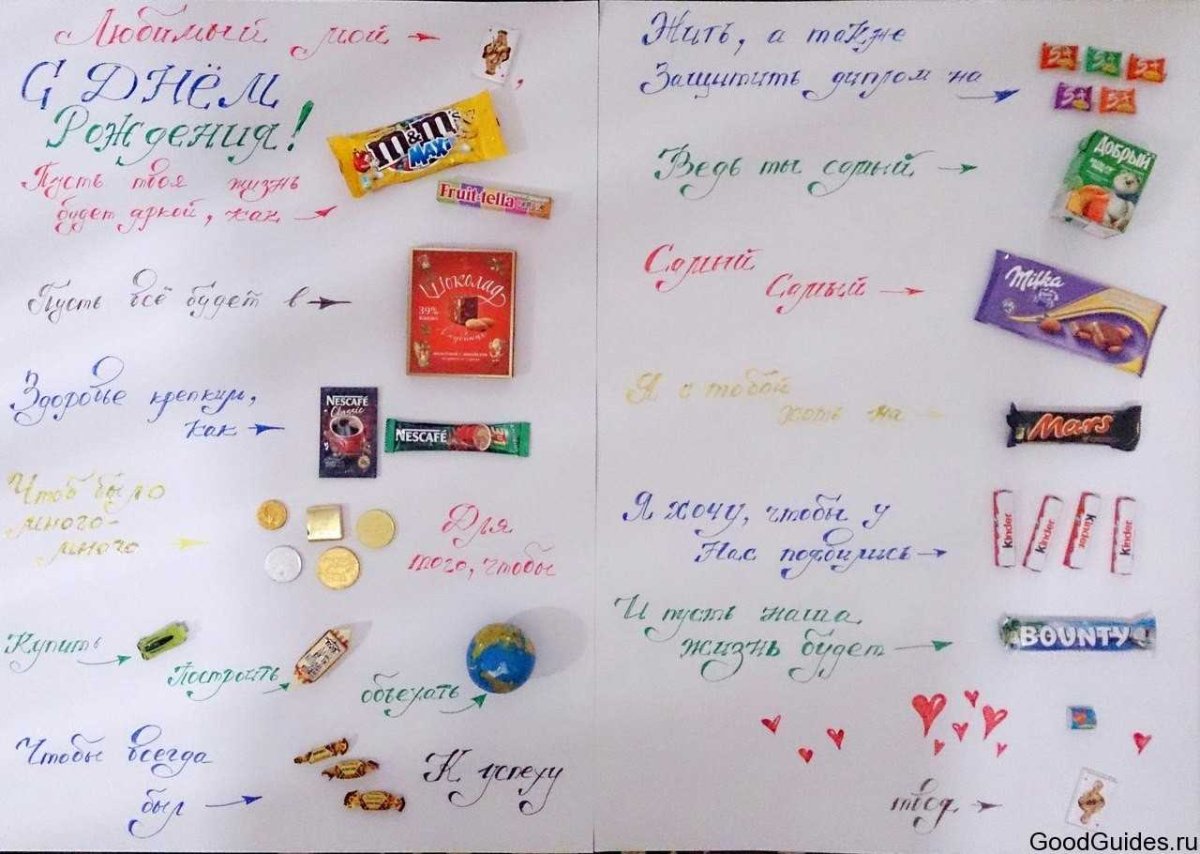 Любимый мой
С ДНЁМ
Рождения!
m&m's
MAXI
Пусть твоя жизнь
будет яркой, как
Fruit-tella
Пусть всё будет в
ШОКОЛАД
39%
Здоровье крепким,
как
NESCAFÉ
Classic
NESCAFÉ
Чтоб было
много-
много
Для
того, чтобы
Купить
Построить
объехать
Чтобы всегда
был
К успеху
Жить, а также
Защитить диплом на
5+
5+
5+
5+
5+
Ведь ты самый
Добрый
Самый
Самый
Milka
Я с тобой
хоть на
Mars
Я хочу, чтобы у
Нас появились
Kinder
Kinder
Kinder
Kinder
И пусть наша
жизнь будет
BOUNTY
твоя
GoodGuides.ru